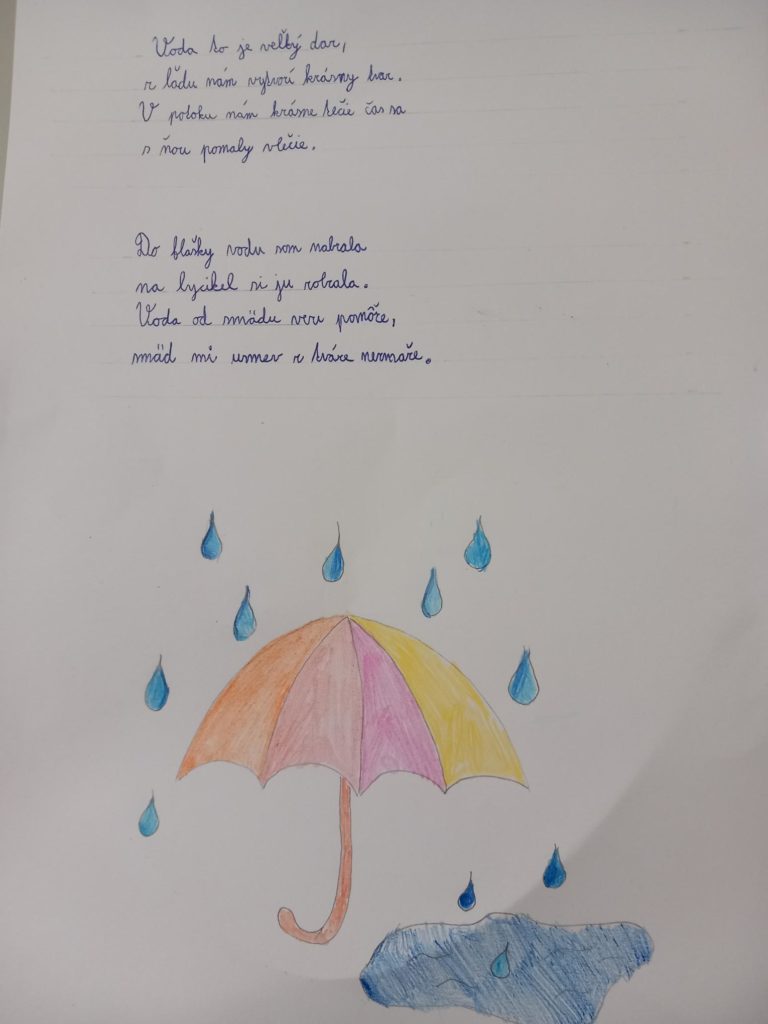 Voda to je veľký dar,
z ľadu nám vytvorí krásny tvar.
V potoku nám krásne tečie čas sa
s ňou pomaly vlečie.
Do fľašky vodu som nabrala
na bycikel si ju zobrala.
Voda od smädu veru pomôže,
smäd mi usmev z tváre nezmaže.